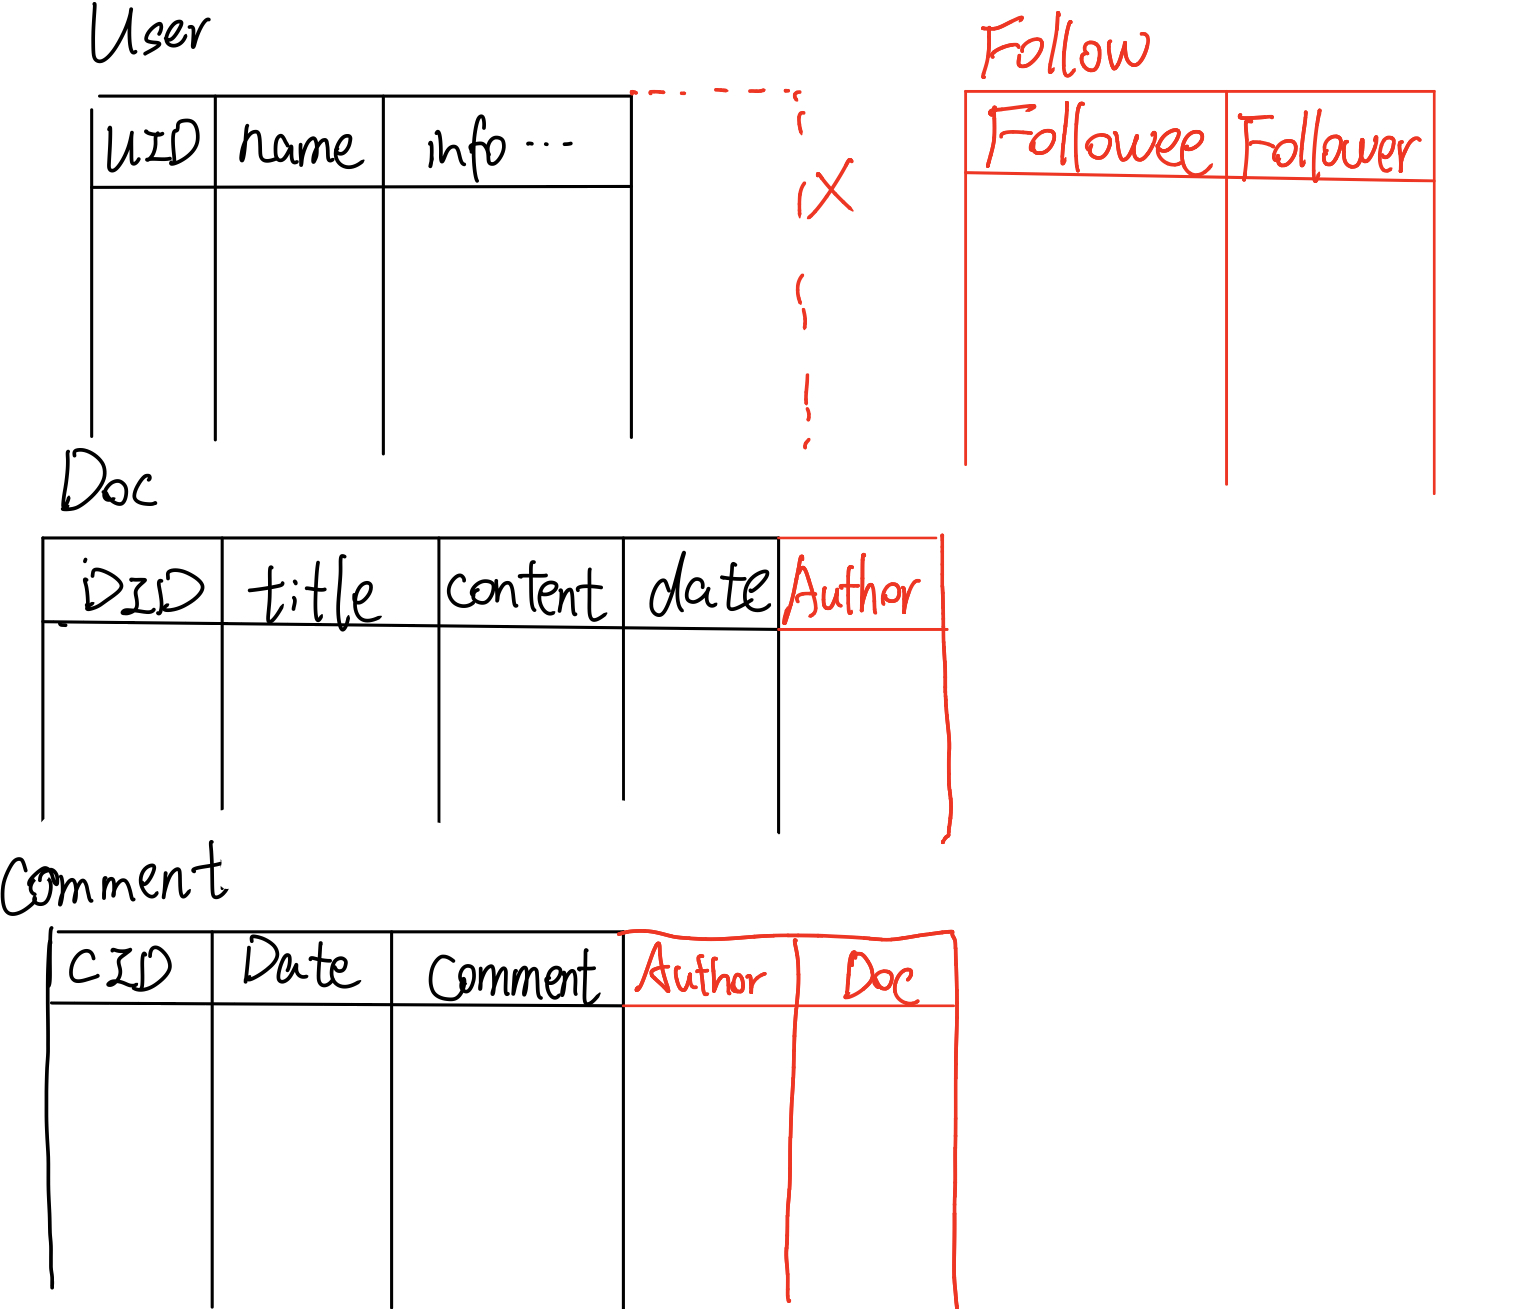 User
UID name info ...
X
Follow
Followee Follower
Doc
DID title content date Author
Comment
CID Date Comment Author Doc